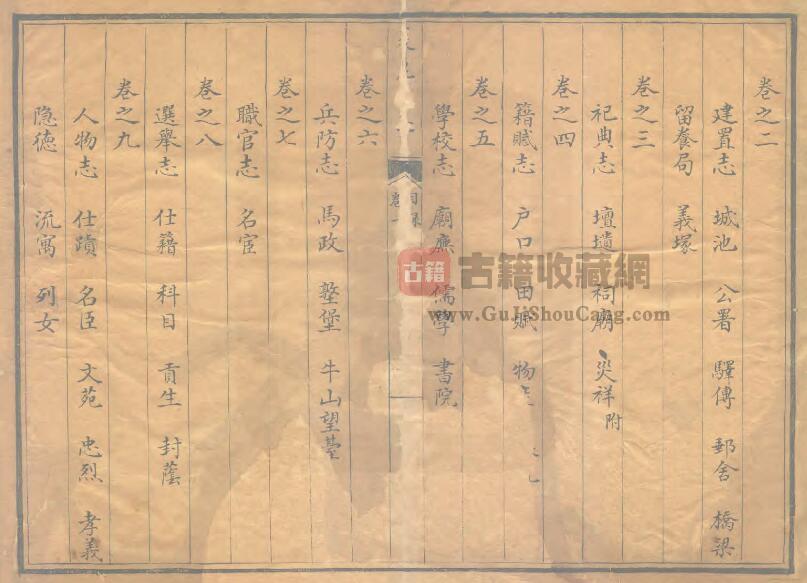 卷之二
建置志 城池 公署 驛傳 郵舍 橋梁
留養局 義塚
卷之三
祀典志 壇壝 祠廟 災祥附
卷之四
籍賦志 戶口 田賦 物
卷之五
學校志 廟廡 儒學 書院
目錄
卷一
卷之六
兵防志 馬政 墪堡 牛山望臺
卷之七
職官志 名宦
卷之八
選舉志 仕籍 科目 貢生 封蔭
卷之九
人物志 仕蹟 名臣 文苑 忠烈 孝義
隐德 流寓 列女
古籍
古籍收藏網
www.GuJiShouCang.com